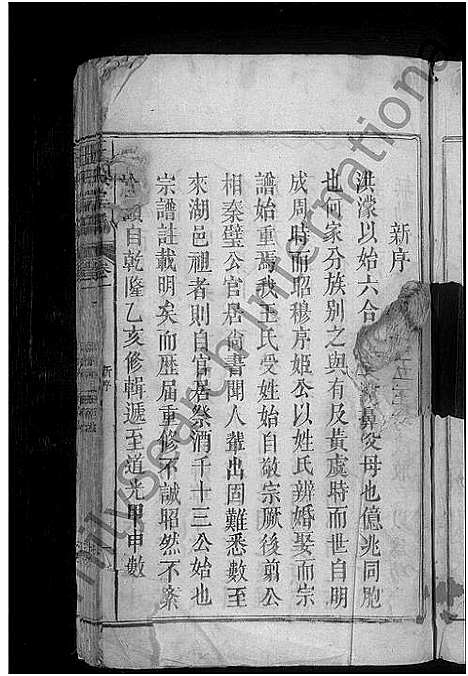 新序
洪濛以始六合
父母也億兆同胞
也何家分族別之與有及黃虞時而世自明
成周時而昭穆序姬公以姓氏辨婚娶而宗
譜始重焉我王氏受姓始自敬宗厥後翦公
相秦璧公官居尚書聞人輩出固難悉數至
來湖邑祖者則自官居祭酒千十三公始也
宗譜註載明矣而歷届重修不誠昭然不紊
自乾隆乙亥修輯遞至道光甲申數
新序
FamilySearch International